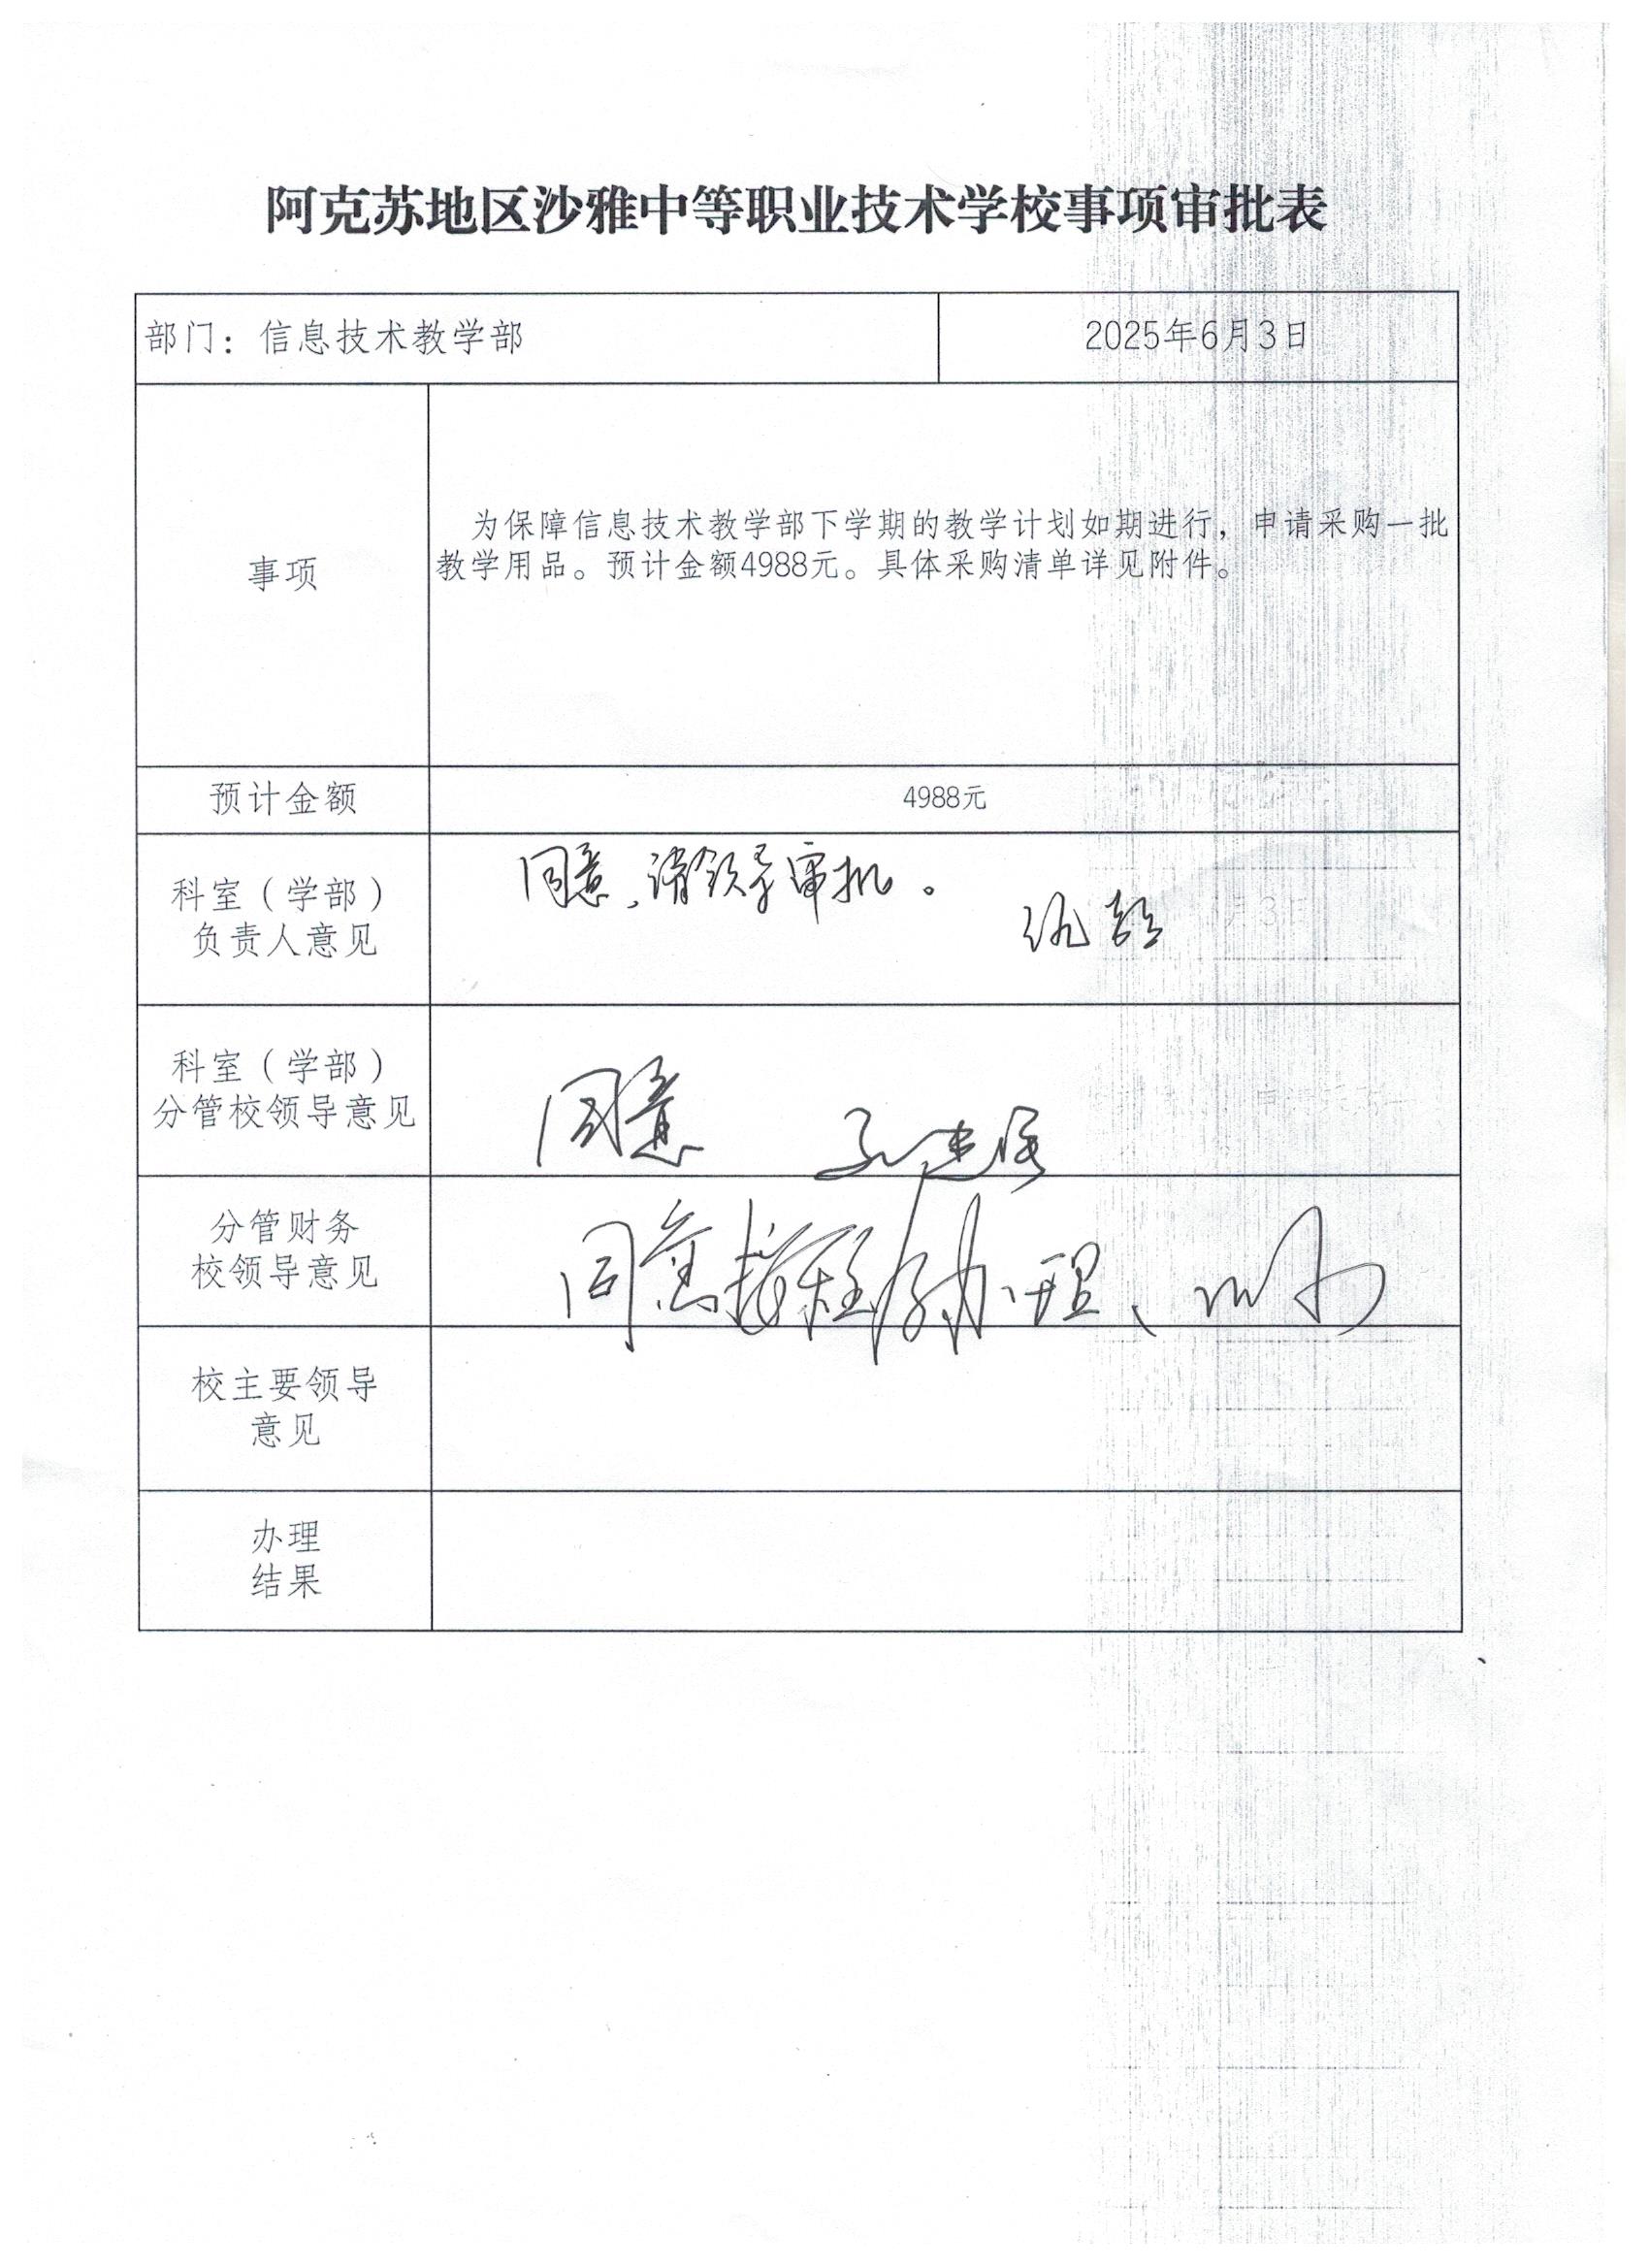 阿克苏地区沙雅中等职业技术学校事项审批表
部门：信息技术教学部
2025年6月3日
事项
为保障信息技术教学部下学期的教学计划如期进行，申请采购一批
教学用品。预计金额4988元。具体采购清单详见附件。
预计金额
4988元
科室（学部）
负责人意见
同意，请领导审批。
科室（学部）
分管校领导意见
同意
分管财务
校领导意见
同意按程序办理、
校主要领导
意见
办理
结果